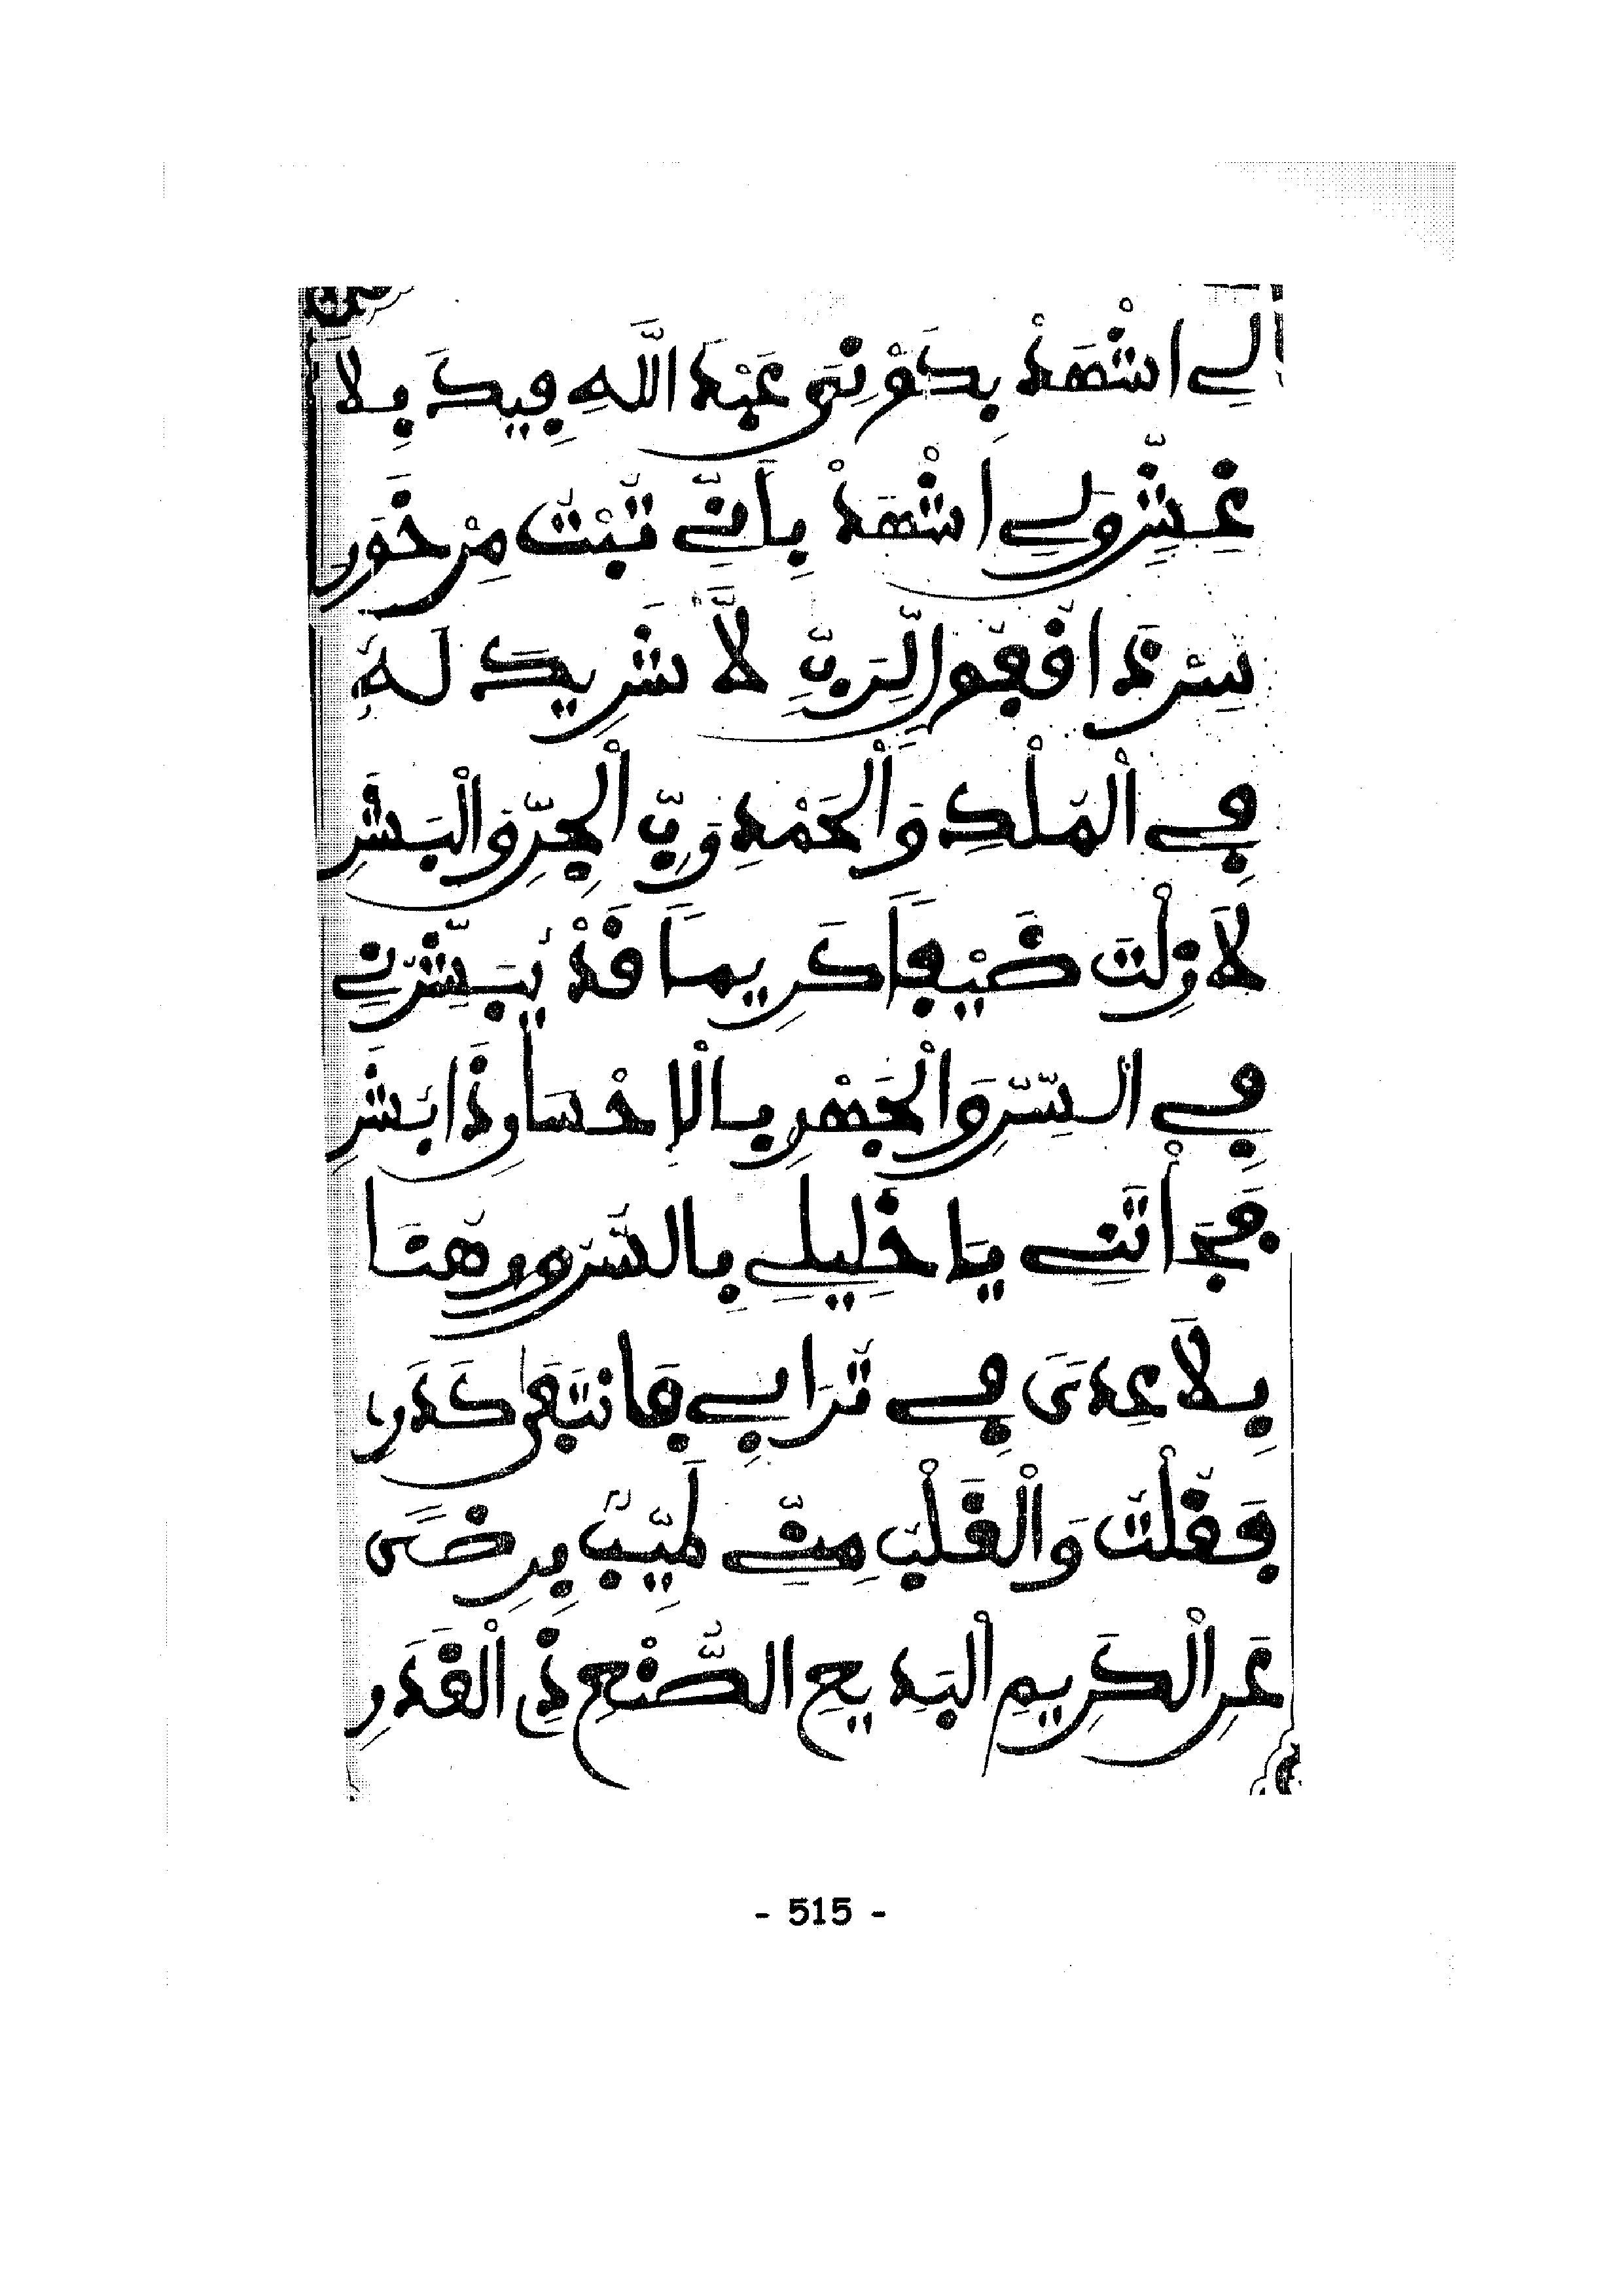 لِى اشْهَدْ بِكَوْنِى عَبْدَ اللَّهِ فِيكَ بِلَا
غِشٍّ وَلِى اشْهَدْ بِأَنِّى تُبْتُ مِنْ خَوَرِ
سِرْ نَافِعًا لِرَبٍّ لَا شَرِيكَ لَهُ
فِى الْمُلْكِ وَالْحَمْدِ رَبِّ الْجِنِّ وَالْبَشَرِ
لَا زِلْتَ ضَيْفًا كَرِيمًا قَدْ يُبَشِّرُنِى
فِى السِّرِّ وَالْجَهْرِ بِالْإِحْسَانِ ذَا بَشَرِ
فَجَدْ أَتَتْنِى يَا خَلِيلِى بِالسُّرُورِ هُنَا
بِلَا عِدًى فِى تُرَابِى فَانْتَفَى كَدَرِ
فَقُلْتُ وَالْقَلْبُ مِنِّى طَيِّبٌ بِرِضًى
عَنِ الْكَرِيمِ الْبَدِيعِ الصُّنْعِ ذِى الْقَدَرِ
- 515 -